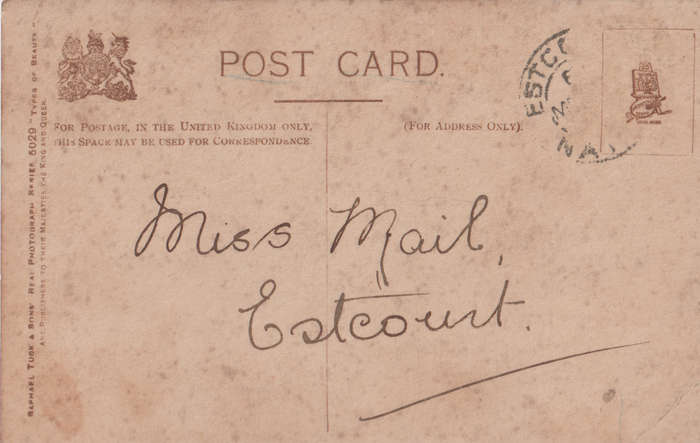 POST CARD.
FOR POSTAGE, IN THE UNITED KINGDOM ONLY,
THIS SPACE MAY BE USED FOR CORRESPONDENCE
(FOR ADDRESS ONLY).
ESTCO
NA
Miss Mail,
Estcourt.
RAPHAEL TUCK & SONS' REAL PHOTOGRAPH SERIES 5029 "TYPES OF BEAUTY"
ART PUBLISHERS TO THEIR MAJESTIES THE KING AND QUEEN.